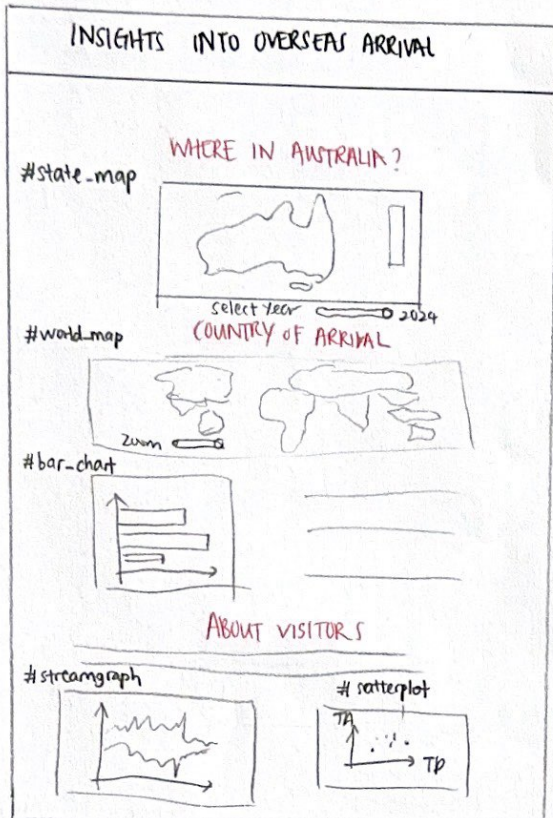 INSIGHTS INTO OVERSEAS ARRIVAL
WHERE IN AUSTRALIA?
#state_map
select Year 2024
#world_map
COUNTRY OF ARRIVAL
Zoom
#bar_chart
ABOUT VISITORS
#streamgraph
# satterplot
TA
TD